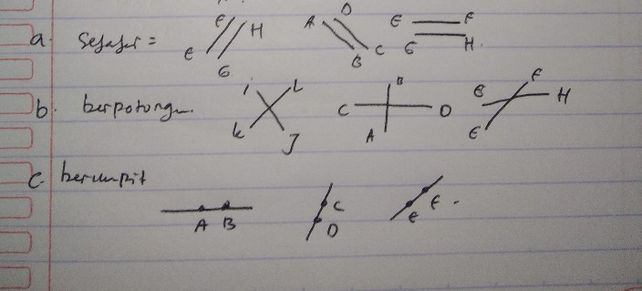 a. Sejajar = E F G H A D B C E F G H.
b. berpotongan i L k J C B A D G F H E
c. berimpit
A B C D E F.